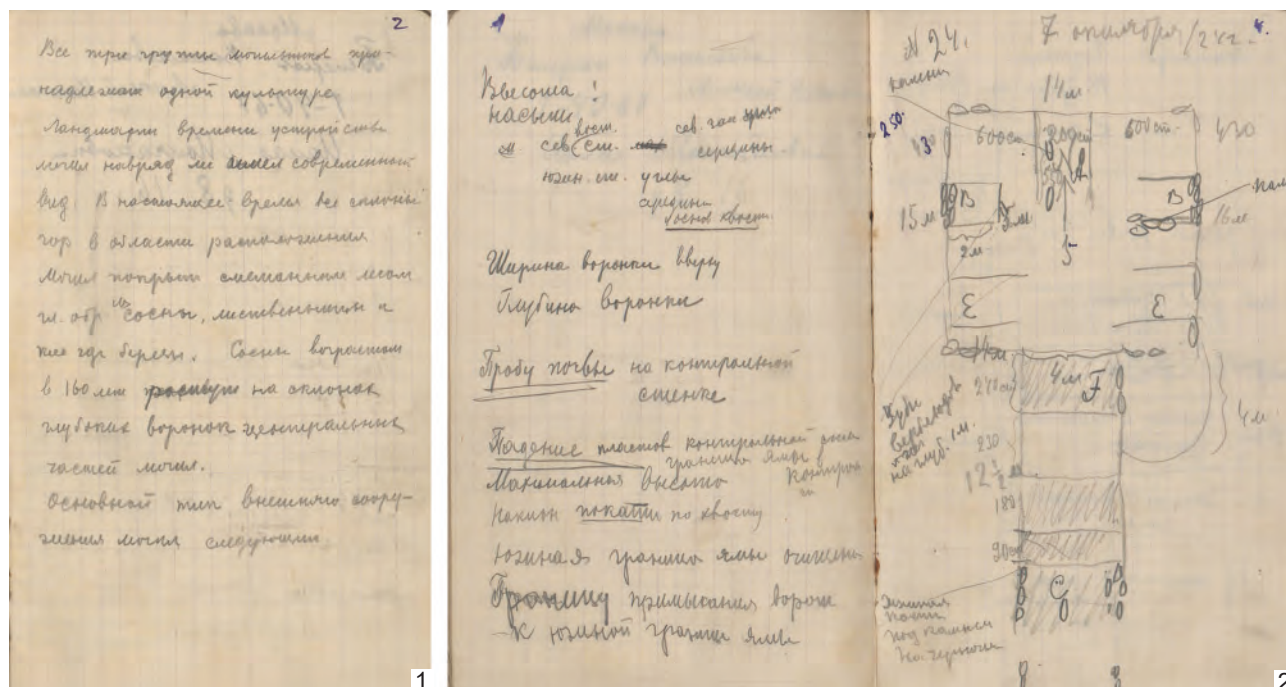 2
Все три группы могильников при-
надлежат одной культуре
Ландшафт времени устройства
могил навряд ли имел современный
вид. В настоящее время все склоны
гор в области расположения
могил покрыты смешанным лесом
гл. обр из сосны, лиственницы и
кое где березы. Сосны возрастом
в 160 лет растут на склонах
глубоких воронок центральных
частей могил.
Основной тип внешнего соору-
жения могил следующий.
1
1
Высота !
насыпи
вост.
м сев ст. середины
южн. ст. углы
середины
основ хвост.
Ширина воронки вверху
Глубина воронки
Пробу почвы на контрольной
стенке
Падение пластов контрольной
границы ямы
Максимальная высота
Наклон по хвосту
Южная граница ямы очищена
Границу примыкания ворон
к южной границе ямы
4.
N 24. 7 октября/24 г.
камни
14 м
250.
430 600 ст. 200 ст 600 ст. 430
A
B B
15 м 2 м 16 м
2 м. 5
E E
4 м
240 см F
4 м
Зубы
верблюда
на глуб. 1 м.
230
12 1/2 м
180
90
C
под камнем
2